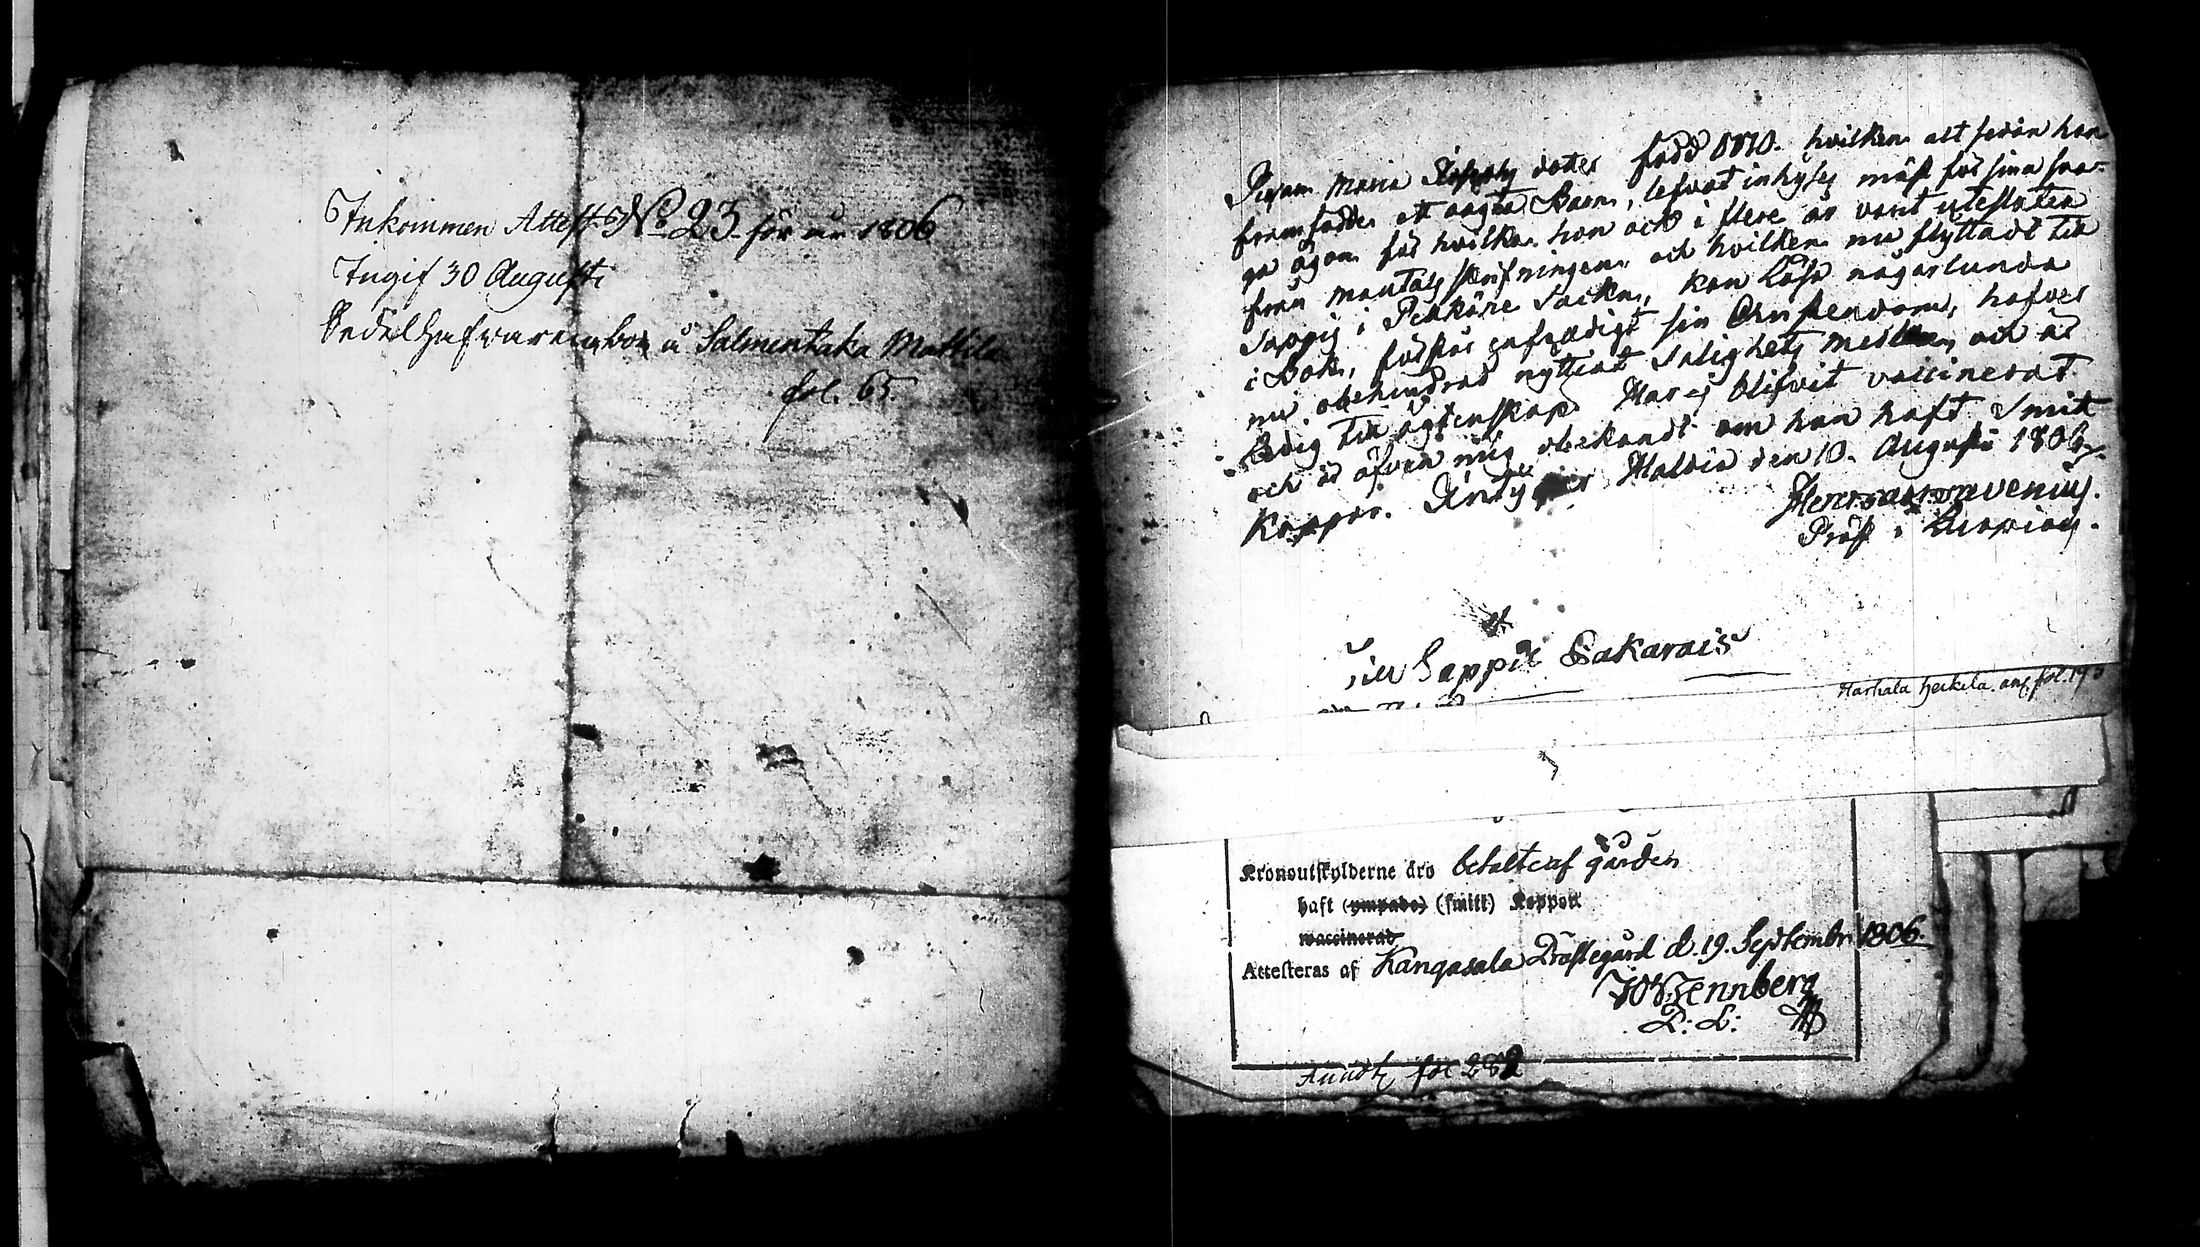 Inkommen Attest No 23 för år 1806
Ingif 30 Augusti
Sedelhafvaren bor å Salmentaka Mattila
fol. 65.
Pigan Maria dotter född hvilken alt sedan hon
framfödde ett oägta Barn, lefvat inhyses mäst för sina sva-
ga ögon för hvilka hon ock i flere år varit utesluten
från mantals skrifningen och hvilken nu flyttadt till
Sappis i Pelkäne Sockn, kan läsa någorlunda
i Bok, förstår enfaldigt sin Christendom, hafver
nu obehindrad nyttjat Salighets medlen och är
ledig till ägtenskap. Har ej blifvit vaccinerat
och är äfven mig obekandt om hon haft Smit
Koppor. Intygar den 10. Augusti 1806.
Prost i
Till Sappis Sakarais
Harhala Heikila ang. fol. 19
Kronoutskylderne äro betalte af gården
haft (ympade) (smitt) Koppor
vaccinerad
Attesteras af Kangasala Prästegård d. 19. Septembr 1806.
Wennberg
P: L:
fol 282